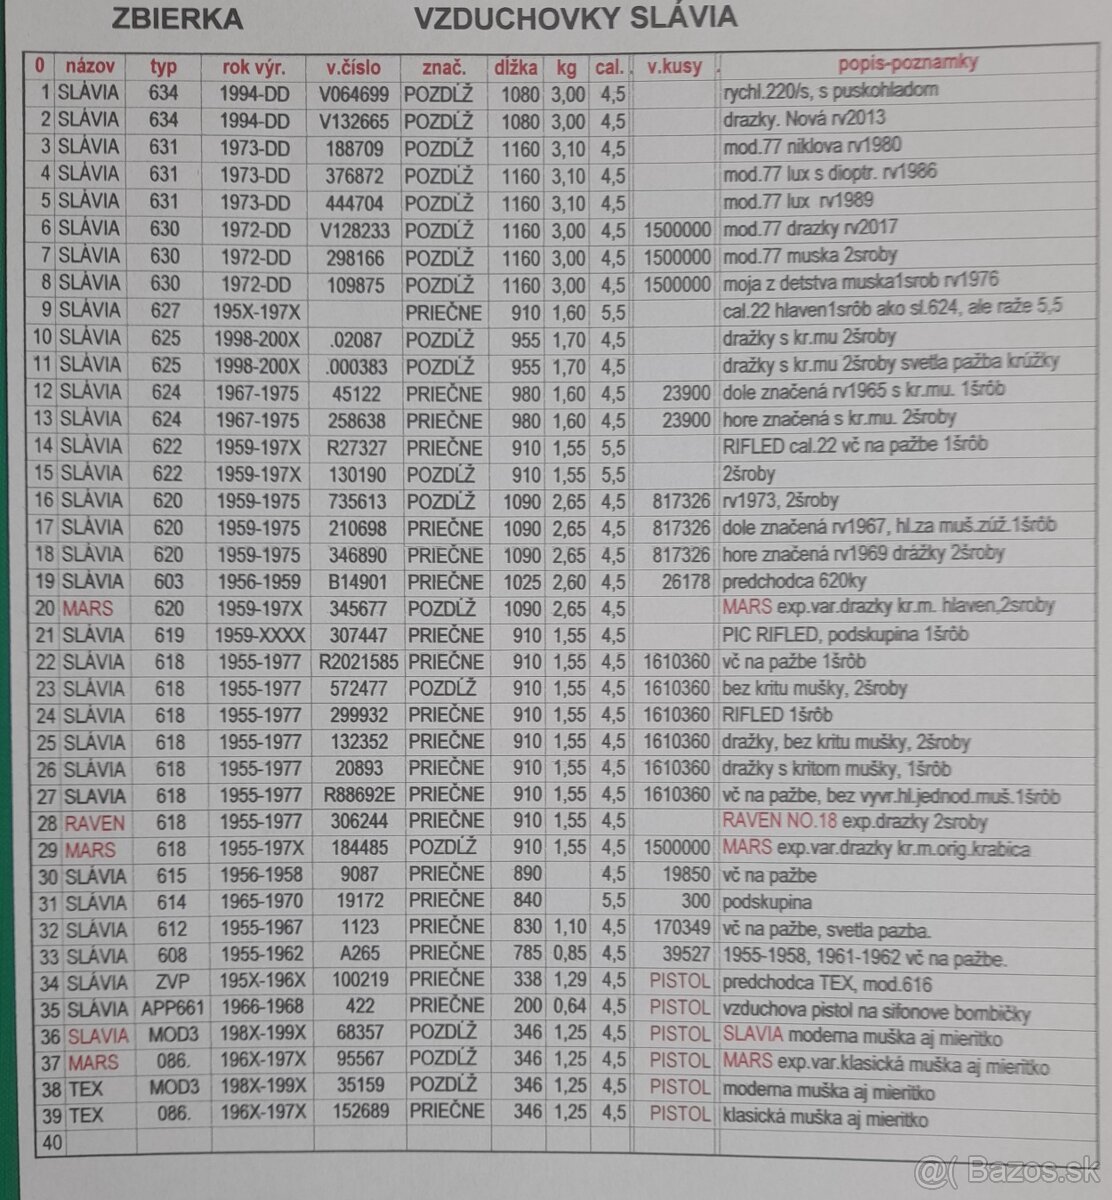 ZBIERKA VZDUCHOVKY SLÁVIA
0 názov typ rok výr. v.číslo znač. dĺžka kg cal. v.kusy popis-poznamky
1 SLÁVIA 634 1994-DD V064699 POZDĹŽ 1080 3,00 4,5 rychl.220/s, s puskohladom
2 SLÁVIA 634 1994-DD V132665 POZDĹŽ 1080 3,00 4,5 drazky. Nová rv2013
3 SLÁVIA 631 1973-DD 188709 POZDĹŽ 1160 3,10 4,5 mod.77 niklova rv1980
4 SLÁVIA 631 1973-DD 376872 POZDĹŽ 1160 3,10 4,5 mod.77 lux s dioptr. rv1986
5 SLÁVIA 631 1973-DD 444704 POZDĹŽ 1160 3,10 4,5 mod.77 lux rv1989
6 SLÁVIA 630 1972-DD V128233 POZDĹŽ 1160 3,00 4,5 1500000 mod.77 drazky rv2017
7 SLÁVIA 630 1972-DD 298166 POZDĹŽ 1160 3,00 4,5 1500000 mod.77 muska 2sroby
8 SLÁVIA 630 1972-DD 109875 POZDĹŽ 1160 3,00 4,5 1500000 moja z detstva muska1srob rv1976
9 SLÁVIA 627 195X-197X PRIEČNE 910 1,60 5,5 cal.22 hlaven1srôb ako sl.624, ale raže 5,5
10 SLÁVIA 625 1998-200X .02087 POZDĹŽ 955 1,70 4,5 dražky s kr.mu 2šroby
11 SLÁVIA 625 1998-200X .000383 POZDĹŽ 955 1,70 4,5 dražky s kr.mu 2šroby svetla pažba krúžky
12 SLÁVIA 624 1967-1975 45122 PRIEČNE 980 1,60 4,5 23900 dole značená rv1965 s kr.mu. 1šrôb
13 SLÁVIA 624 1967-1975 258638 PRIEČNE 980 1,60 4,5 23900 hore značená s kr.mu. 2šroby
14 SLÁVIA 622 1959-197X R27327 PRIEČNE 910 1,55 5,5 RIFLED cal.22 vč na pažbe 1šrôb
15 SLÁVIA 622 1959-197X 130190 POZDĹŽ 910 1,55 5,5 2šroby
16 SLÁVIA 620 1959-1975 735613 POZDĹŽ 1090 2,65 4,5 817326 rv1973, 2šroby
17 SLÁVIA 620 1959-1975 210698 PRIEČNE 1090 2,65 4,5 817326 dole značená rv1967, hl.za muš.zúž.1šrôb
18 SLÁVIA 620 1959-1975 346890 PRIEČNE 1090 2,65 4,5 817326 hore značená rv1969 drážky 2šroby
19 SLÁVIA 603 1956-1959 B14901 PRIEČNE 1025 2,60 4,5 26178 predchodca 620ky
20 MARS 620 1959-197X 345677 POZDĹŽ 1090 2,65 4,5 MARS exp.var.drazky kr.m. hlaven,2sroby
21 SLÁVIA 619 1959-XXXX 307447 PRIEČNE 910 1,55 4,5 PIC RIFLED, podskupina 1šrôb
22 SLÁVIA 618 1955-1977 R2021585 PRIEČNE 910 1,55 4,5 1610360 vč na pažbe 1šrôb
23 SLÁVIA 618 1955-1977 572477 POZDĹŽ 910 1,55 4,5 1610360 bez kritu mušky, 2šroby
24 SLÁVIA 618 1955-1977 299932 PRIEČNE 910 1,55 4,5 1610360 RIFLED 1šrôb
25 SLÁVIA 618 1955-1977 132352 PRIEČNE 910 1,55 4,5 1610360 dražky, bez kritu mušky, 2šroby
26 SLÁVIA 618 1955-1977 20893 PRIEČNE 910 1,55 4,5 1610360 dražky s kritom mušky, 1šrôb
27 SLAVIA 618 1955-1977 R88692E PRIEČNE 910 1,55 4,5 1610360 vč na pažbe, bez vyvr.hl.jednod.muš.1šrôb
28 RAVEN 618 1955-1977 306244 PRIEČNE 910 1,55 4,5 RAVEN NO.18 exp.drazky 2sroby
29 MARS 618 1955-197X 184485 POZDĹŽ 910 1,55 4,5 1500000 MARS exp.var.drazky kr.m.orig.krabica
30 SLÁVIA 615 1956-1958 9087 PRIEČNE 890 4,5 19850 vč na pažbe
31 SLÁVIA 614 1965-1970 19172 PRIEČNE 840 5,5 300 podskupina
32 SLÁVIA 612 1955-1967 1123 PRIEČNE 830 1,10 4,5 170349 vč na pažbe, svetla pazba.
33 SLÁVIA 608 1955-1962 A265 PRIEČNE 785 0,85 4,5 39527 1955-1958, 1961-1962 vč na pažbe.
34 SLÁVIA ZVP 195X-196X 100219 PRIEČNE 338 1,29 4,5 PISTOL predchodca TEX, mod.616
35 SLÁVIA APP661 1966-1968 422 PRIEČNE 200 0,64 4,5 PISTOL vzduchova pistol na sifonove bombičky
36 SLAVIA MOD3 198X-199X 68357 POZDĹŽ 346 1,25 4,5 PISTOL SLAVIA moderna muška aj mieritko
37 MARS 086. 196X-197X 95567 POZDĹŽ 346 1,25 4,5 PISTOL MARS exp.var.klasická muška aj mieritko
38 TEX MOD3 198X-199X 35159 POZDĹŽ 346 1,25 4,5 PISTOL moderna muška aj mieritko
39 TEX 086. 196X-197X 152689 PRIEČNE 346 1,25 4,5 PISTOL klasická muška aj mieritko
40
@( Bazos.sk